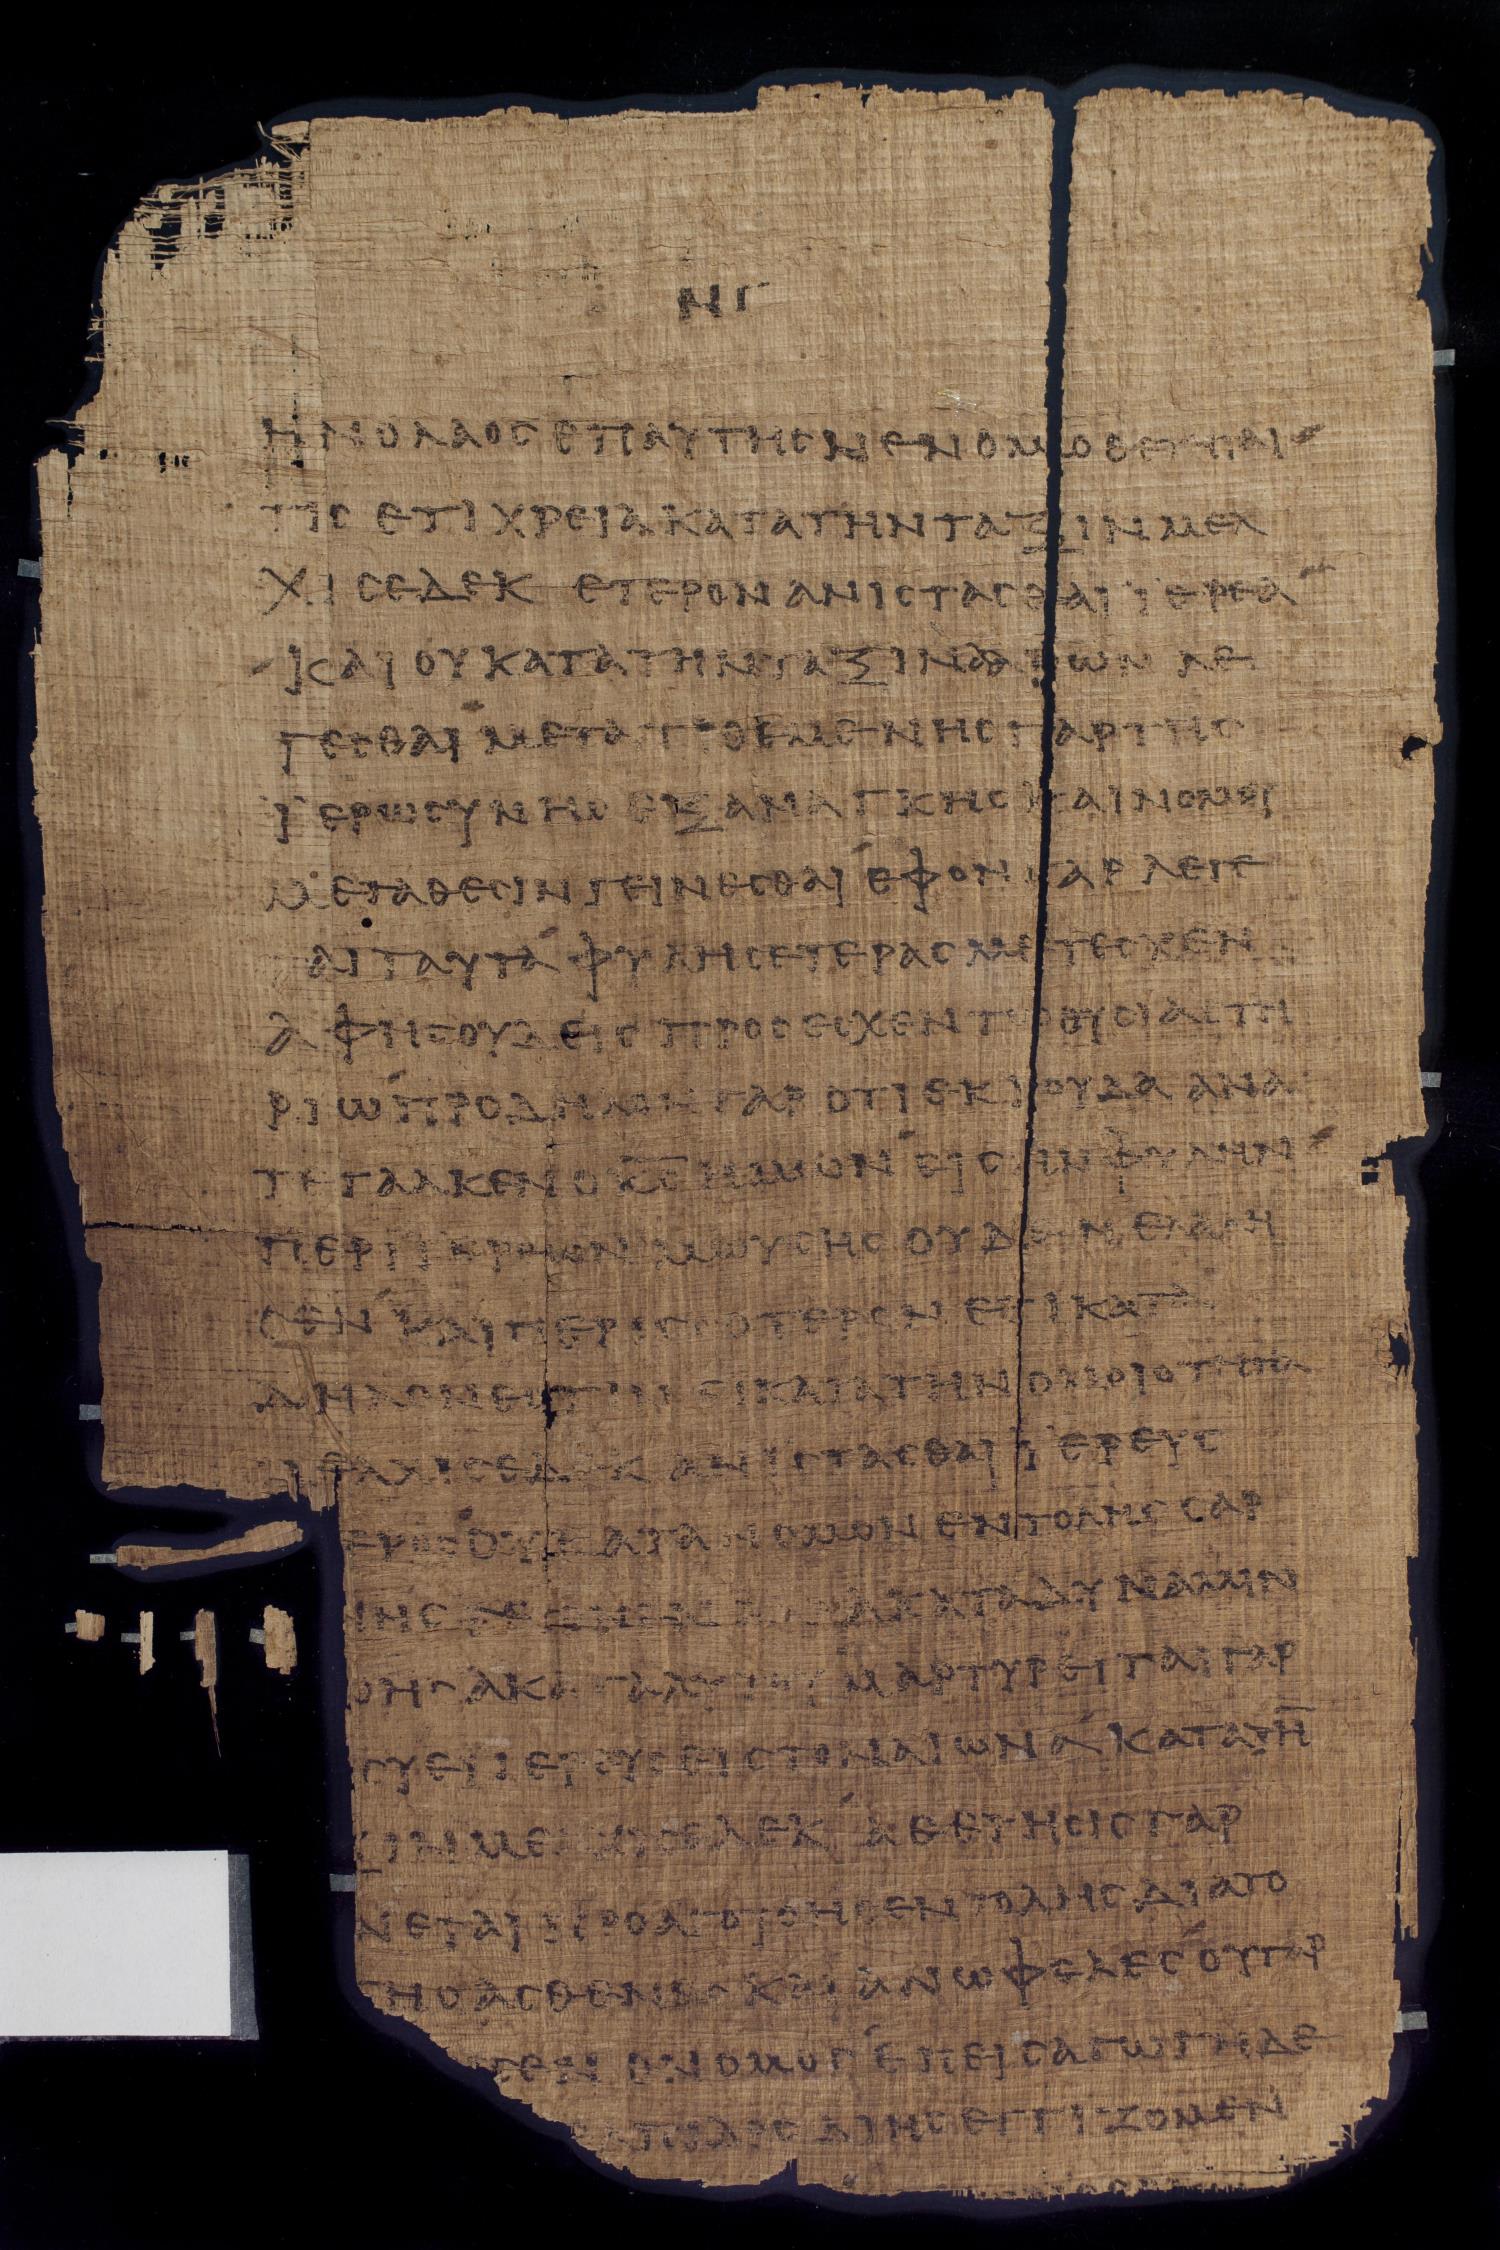 ΝΓ
ΗΝ Ο ΛΑΟС ΕΠ ΑΥΤΗС ΝΕΝΟΜΟΘΕΤΗΤΑΙ
ΤΙС ΕΤΙ ΧΡΕΙΑ ΚΑΤΑ ΤΗΝ ΤΑΞΙΝ ΜΕΛ
ΧΙСΕΔΕΚ ΕΤΕΡΟΝ ΑΝΙСΤΑСΘΑΙ ΪΕΡΕΑ
ΚΑΙ ΟΥ ΚΑΤΑ ΤΗΝ ΤΑΞΙΝ ΑΑΡΩΝ ΛΕ
ΓΕСΘΑΙ ΜΕΤΑΤΙΘΕΜΕΝΗС ΓΑΡ ΤΗС
ΪΕΡΩСΥΝΗС ΕΞ ΑΝΑΓΚΗС ΚΑΙ ΝΟΜΟΥ
ΜΕΤΑΘΕСΙΝ ΓΕΙΝΕСΘΑΙ ΕΦ ΟΝ ΓΑΡ ΛΕΓΕ
ΤΑΙ ΤΑΥΤΑ ΦΥΛΗС ΕΤΕΡΑС ΜΕΤΕСΧΕΝ
ΑΦ ΗС ΟΥΔΕΙС ΠΡΟСΕСΧΕΝ ΤΩ ΘΥСΙΑСΤΗ
ΡΙΩ ΠΡΟΔΗΛΟΝ ΓΑΡ ΟΤΙ ΕΚ ΪΟΥΔΑ ΑΝΑ
ΤΕΤΑΛΚΕΝ Ο ΚС ΗΜΩΝ ΕΙС ΗΝ ΦΥΛΗΝ
ΠΕΡΙ ΪΕΡΕΩΝ ΜΩΥСΗС ΟΥΔΕΝ ΕΛΑΛΗ
СΕΝ ΚΑΙ ΠΕΡΙССΟΤΕΡΟΝ ΕΤΙ ΚΑΤΑ
ΔΗΛΟΝ ΕСΤΙΝ ΕΙ ΚΑΤΑ ΤΗΝ ΟΜΟΙΟΤΗΤΑ
ΜΕΛΧΙСΕΔΕΚ ΑΝΙСΤΑСΘΑΙ ΪΕΡΕΥС
ΕΡΟС ΟΥ ΚΑΤΑ ΝΟΜΟΝ ΕΝΤΟΛΗС СΑΡ
ΝΗС ΓΕΓΟΝΕΝ ΑΛΛΑ ΚΑΤΑ ΔΥΝΑΜΙΝ
ΩΗС ΑΚΑΤΑΛΥΤΟΥ ΜΑΡΤΥΡΕΙΤΑΙ ΓΑΡ
СΥ ΕΙ ΙΕΡΕΥС ΕΙС ΤΟΝ ΑΙΩΝΑ ΚΑΤΑ ΤΗ̄
ΞΙΝ ΜΕΛΧΙСΕΔΕΚ ΑΘΕΤΗСΙС ΓΑΡ
ΝΕΤΑΙ ΠΡΟΑΓΟΥСΗС ΕΝΤΟΛΗС ΔΙΑ ΤΟ
ΤΗС ΑСΘΕΝΕС ΚΑΙ ΑΝΩΦΕΛΕС ΟΥ ΓΑΡ
СΕΝ Ο ΝΟΜΟС ΕΠΕΙСΑΓΩΓΗ ΔΕ
ΕΛΠΙΔΟС ΔΙ ΗС ΕΓΓΙΖΟΜΕΝ